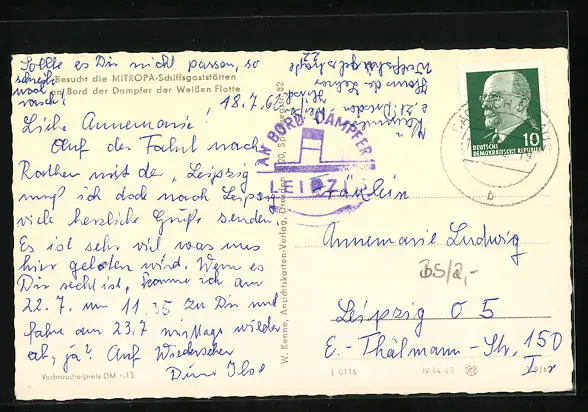 Sollte es Dir nicht passen, so
schreib
noch
rasch!
Besucht die MITROPA-Schiffsgaststätten
an Bord der Dampfer der Weißen Flotte
18.7.62
Liebe Annemarie!
Auf der Fahrt nach
Rathen mit der "Leipzig
muß ich doch nach Leipzig
viele herzliche Grüße senden.
Es ist sehr viel was uns
hier geboten wird. Wenn es
Dir recht ist, komme ich am
22.7. um 11.35 zu Dir und
fahre am 23.7 mittags wieder
ab, ja? Auf Wiedersehen
Deine Ilse
Verbraucherpreis DM -.15
W. Kenne, Ansichtskarten-Verlag, Dresden
AN BORD DAMPFER
LEIPZIG
DEUTSCHE
DEMOKRATISCHE REPUBLIK
10
b
Fräulein
Annemarie Ludwig
BS/2,-
Leipzig O 5
E.-Thälmann-Str. 150
L 0116
IV-14-45